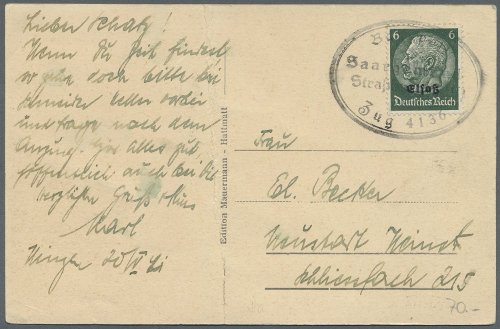 Lieber Schatz!
Wenn Du Zeit findest
so gehe doch bitte bei
vorbei
und frage nach dem
Anzug. Hier alles gut,
hoffentlich auch bei Dir
herzlichen Gruß & Kuss
Karl
20/IV 41
Edition Mauermann - Hattmatt
Saar
Straß
Zug 4136
6 6
Elsaß
Deutsches Reich
Frau
El. Becker
Neustadt Weinstr
Schließfach 215
70.-